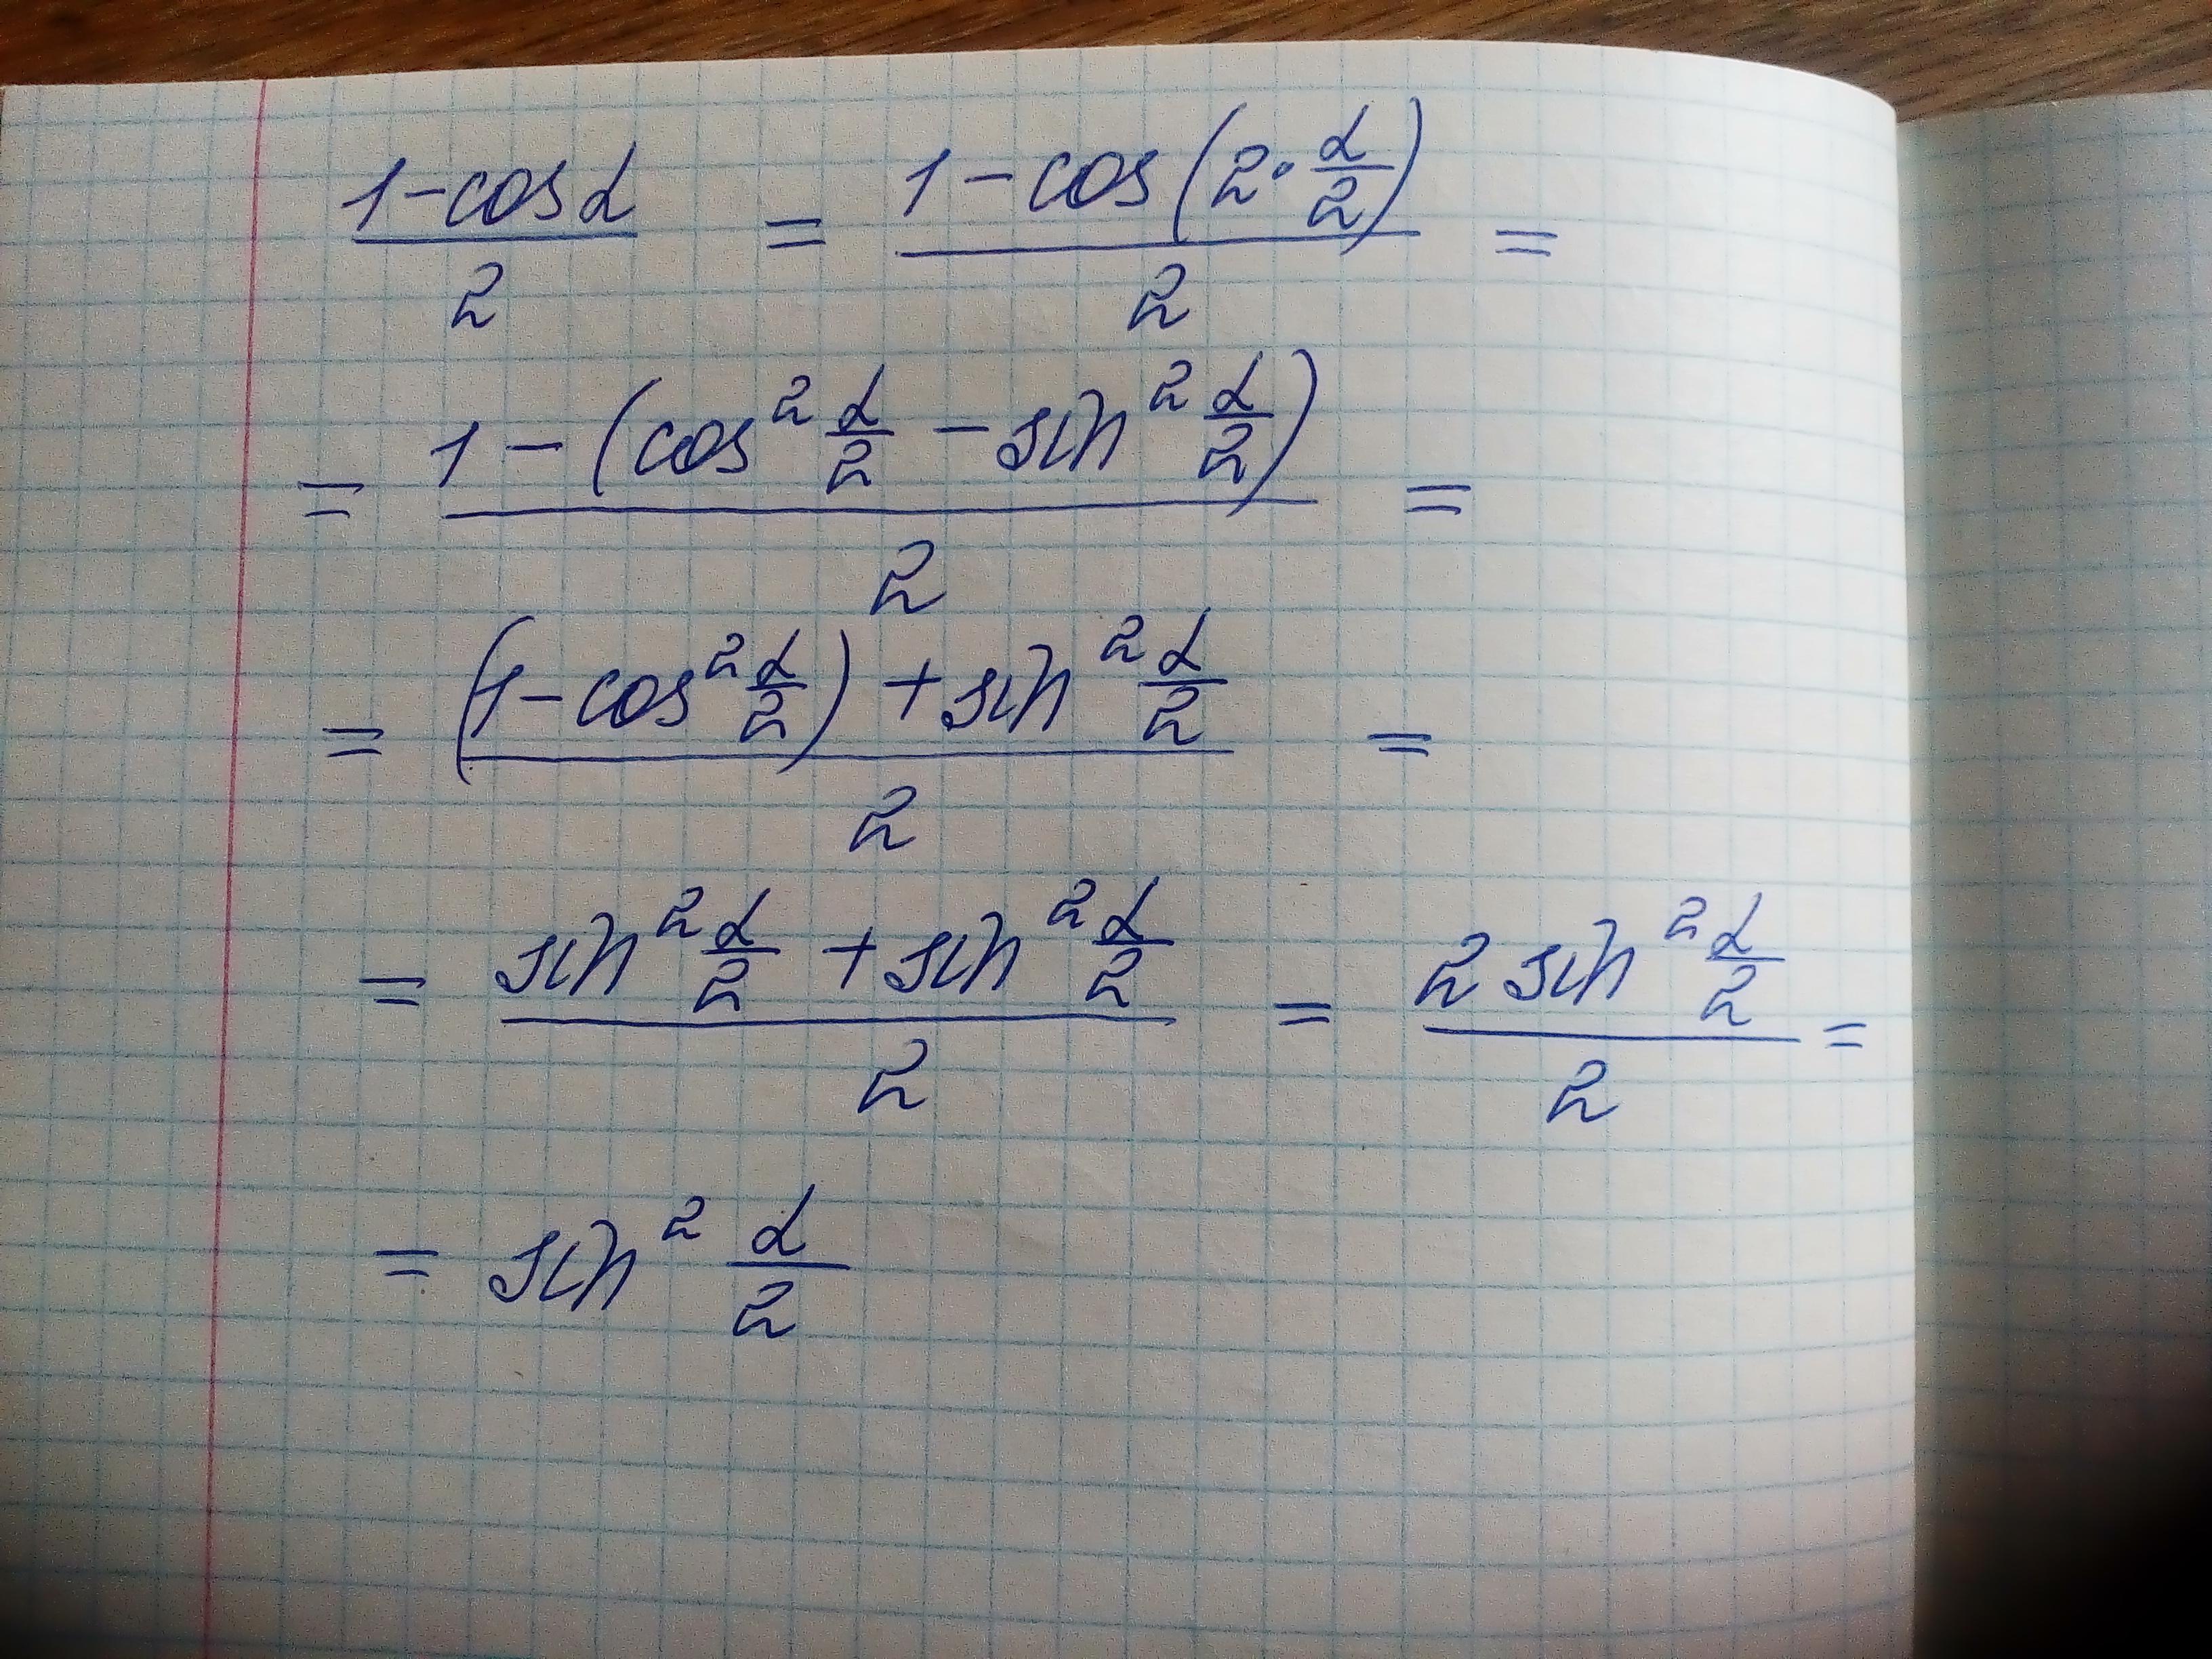 (1-cosα)/2 = (1-cos(2·α/2))/2 =
= (1-(cos²α/2 - sin²α/2))/2 =
= ((1-cos²α/2)+sin²α/2)/2 =
= (sin²α/2 + sin²α/2)/2 = (2 sin²α/2)/2 =
= sin² α/2